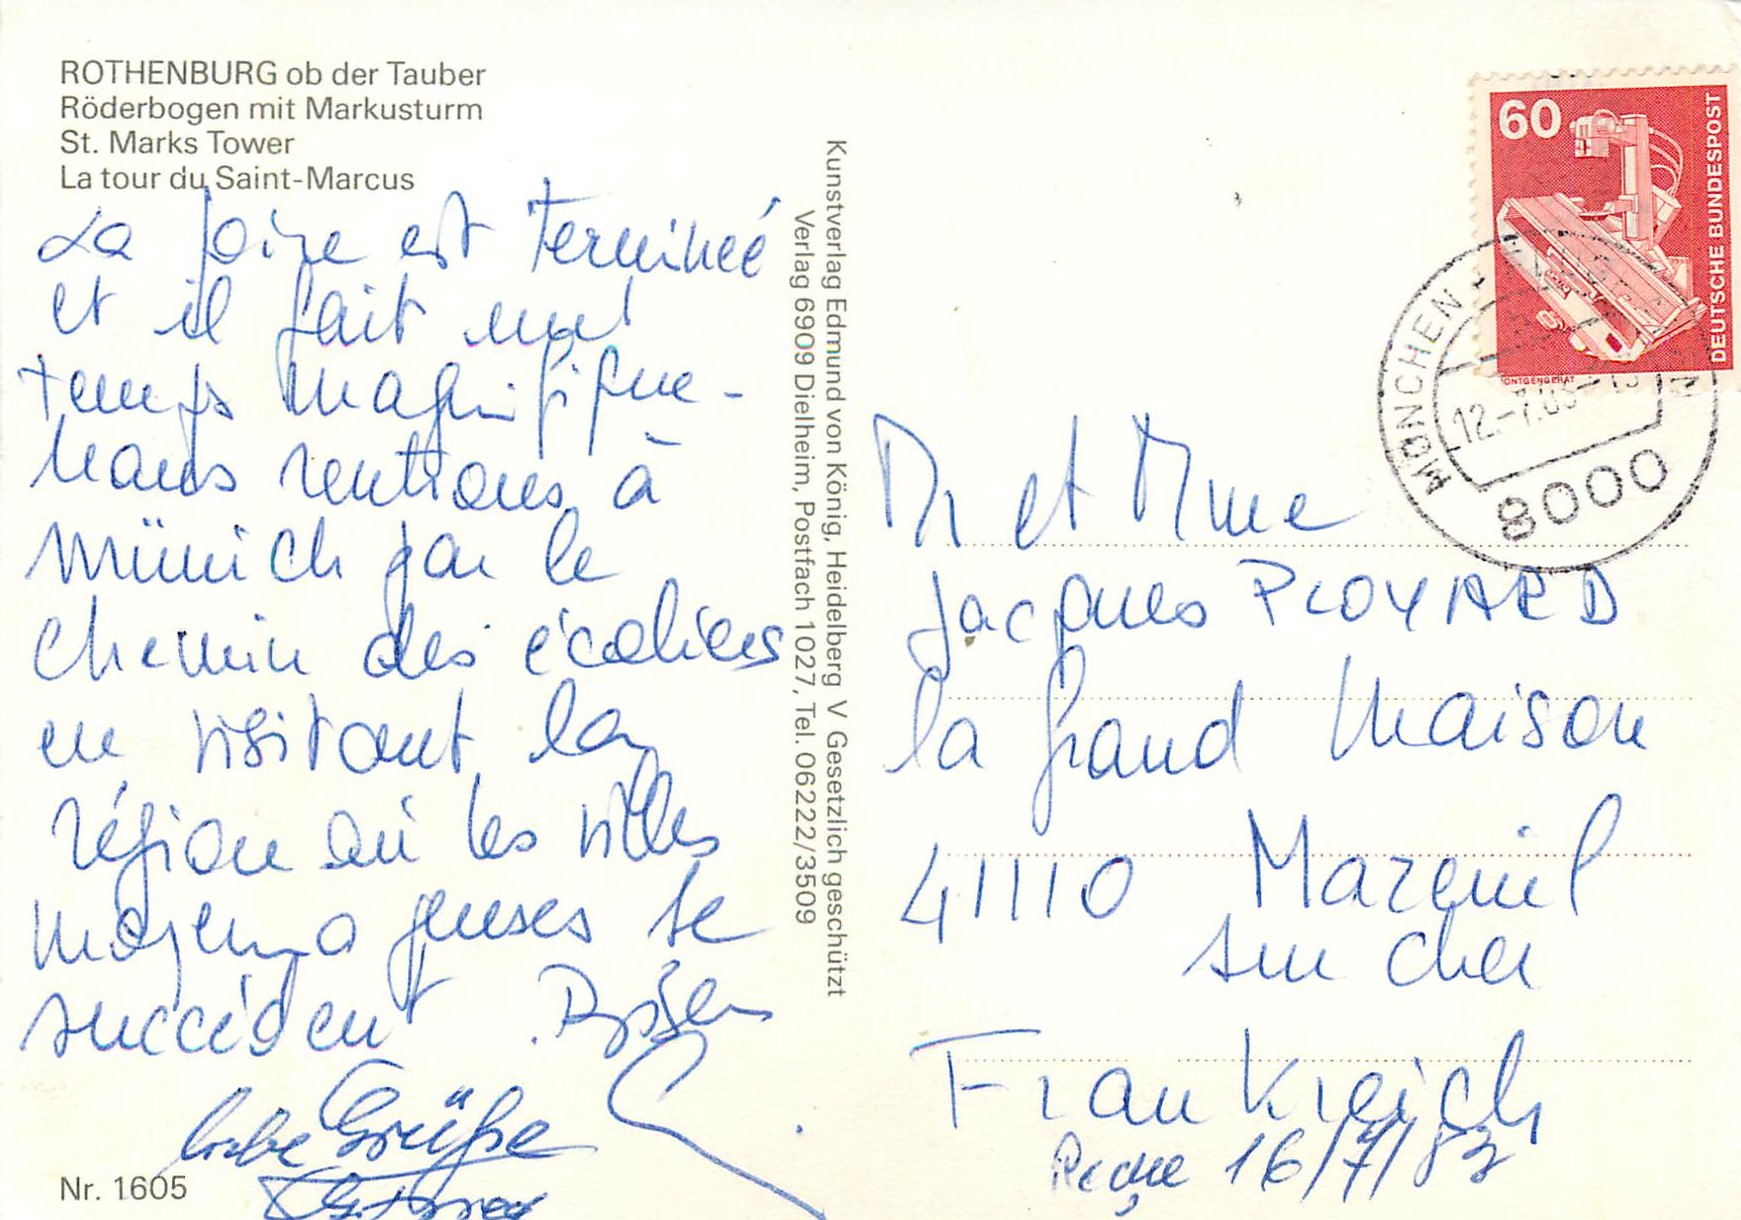 ROTHENBURG ob der Tauber
Röderbogen mit Markusturm
St. Marks Tower
La tour du Saint-Marcus
La foire est terminée
et il fait un
temps magnifique -
Nous rentrons à
Münich par le
chemin des écoliers
en visitant la
région où les villes
moyenageuses se
succèdent .
liebe Grüße
Nr. 1605
Kunstverlag Edmund von König, Heidelberg V Gesetzlich geschützt
Verlag 6909 Dielheim, Postfach 1027, Tel. 06222/3509
60
DEUTSCHE BUNDESPOST
RÖNTGENGERÄT
MÜNCHEN
12.-7.83
8000
Mr et Mme
Jacques PLOYARD
la grand Maison
41110 Mareuil
sur cher
Frankreich
Reçue 16/7/83